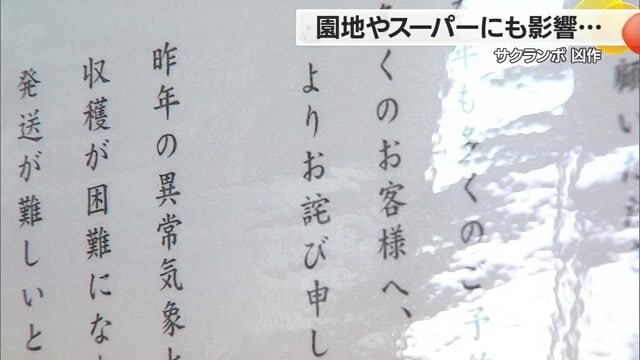 園地やスーパーにも影響…
サクランボ 凶作
願い
年も多くのご予
くのお客様へ、
よりお詫び申し
昨年の異常気象と
収穫が困難にな
発送が難しいと